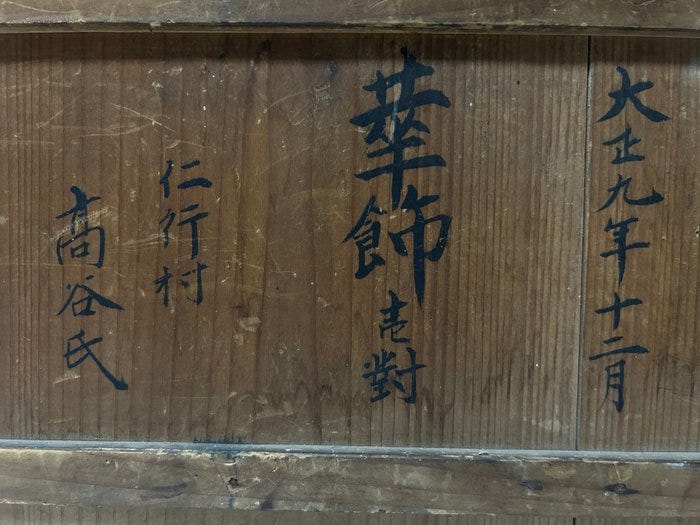 大正九年十二月
華飾壱對
仁行村
高谷氏